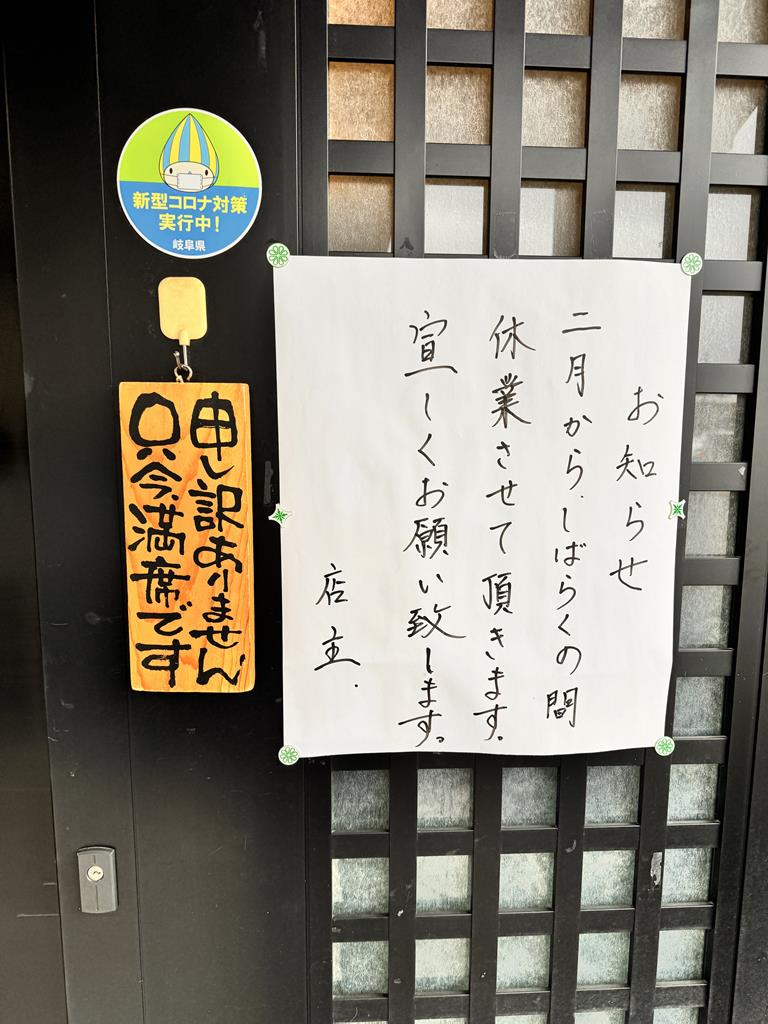 新型コロナ対策
実行中!
岐阜県
申し訳ありません
只今、満席です
お知らせ
二月から、しばらくの間
休業させて頂きます。
宣しくお願い致します。
店主.